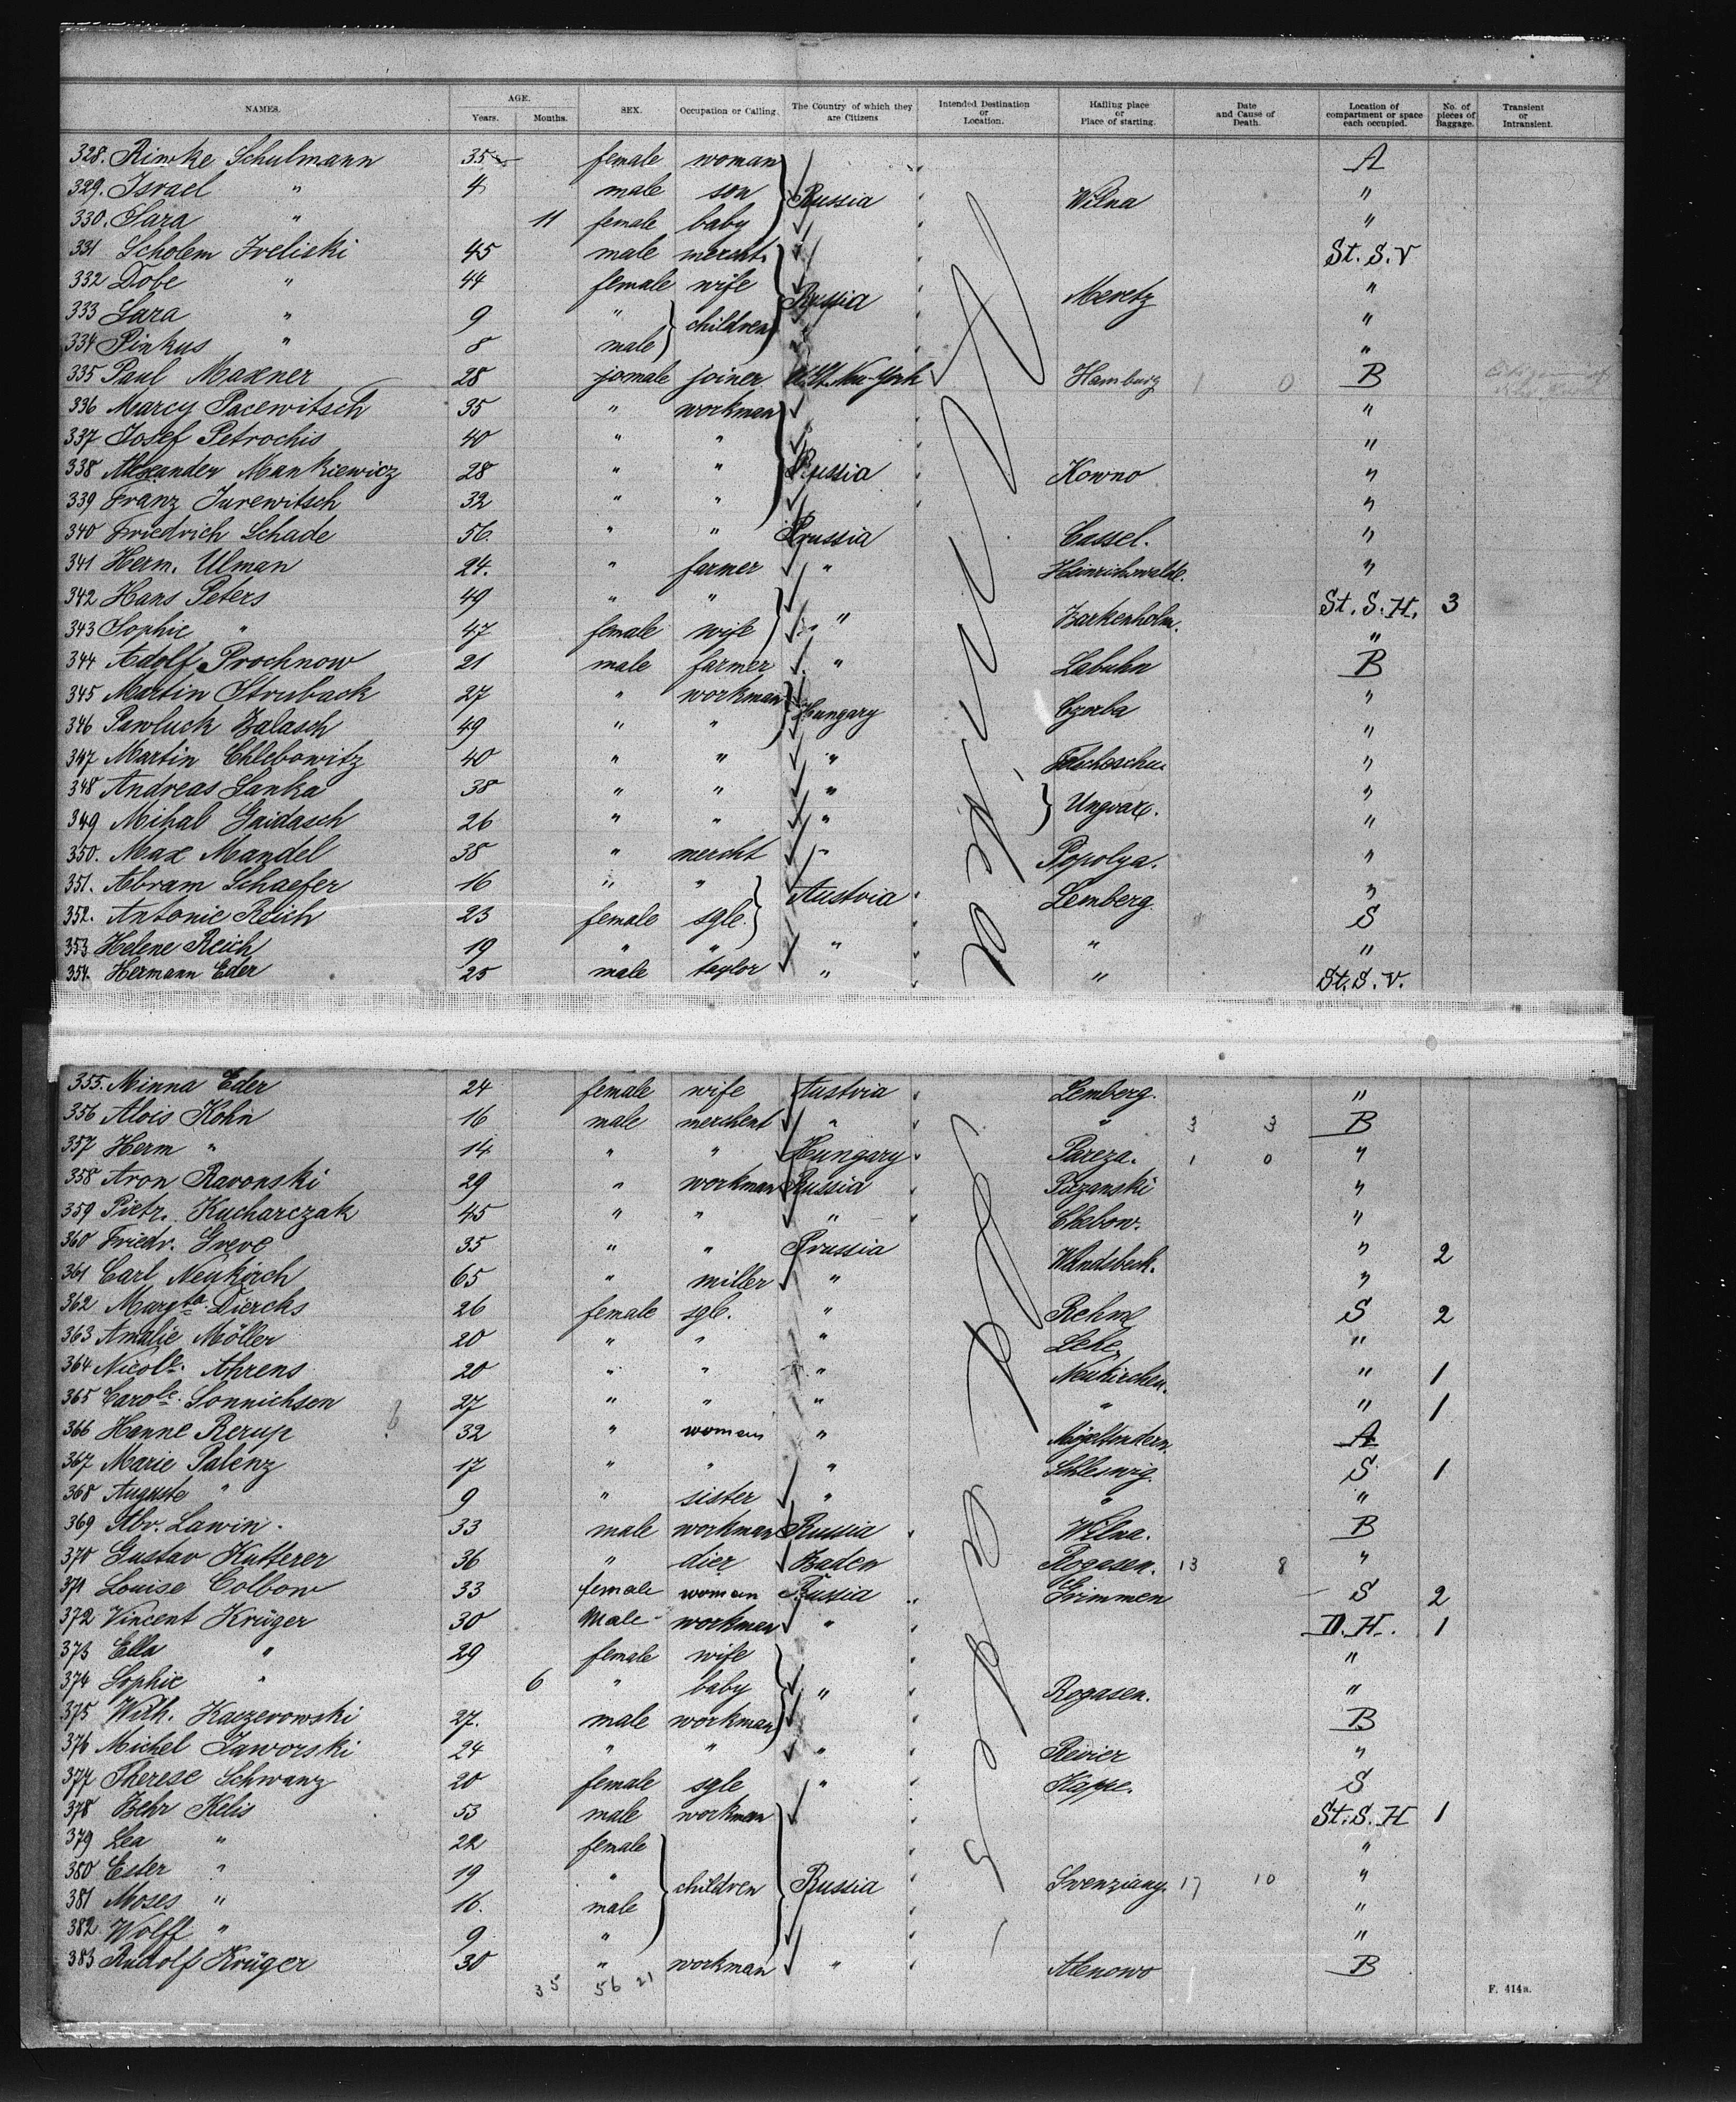 NAMES. AGE. Years. Months. SEX. Occupation or Calling. The Country of which they are Citizens Intended Destination or Location. Hailing place or Place of starting. Date and Cause of Death. Location of compartment or space each occupied. No. of pieces of Baggage. Transient or Intransient.
328. Rimke Schulmann 35 female woman A
329. Israel " 4 male son Russia Wilna "
330. Sara " 11 female baby "
331 Scholem Iveliski 45 male mercht. St. S. V
332 Dobe " 44 female wife Russia Meretz "
333 Sara " 9 " children "
334 Pinkus " 8 male "
335 Paul Maxner 28 male joiner New-York Hamburg 1 0 B
336 Marcy Pacewitsch 35 " workman "
337 Josef Petrochis 40 " " "
338 Alexander Mankiewicz 28 " " Russia Kowno "
339 Franz Jurewitsch 32 " " "
340 Friedrich Schade 56. " " Prussia Cassel. "
341 Herm. Ulman 24. " farmer " Heinrichswalde. "
342 Hans Peters 49 " " St. S. H. 3
343 Sophie " 47 female wife " Barkenholm. "
344 Adolf Prochnow 21 male farmer " Labuhn B
345 Martin Struback 27 " workman Hungary Czorba "
346 Pawluck Balasch 49 " " "
347 Martin Chlebowitz 40 " " " "
348 Andreas Sanka 38 " " " Ungvar. "
349 Mihal Gaidasch 26 " " " "
350. Max Mandel 38 " mercht " Popolya. "
351. Abram Schaefer 16 " " Austria Lemberg "
352. Antonie Reich 23 female sgle. S
353 Helene Reich 19 " " " " "
354. Hermann Eder 25 male taylor " " St. S. V.
355. Minna Eder 24 female wife Austria Lemberg. "
356 Alois Kohn 16 male merchent " " 3 3 B
357 Herm " 14 " " Hungary Pareza. 1 0 "
358 Aron Ravonski 29 " workman Russia Puzanski "
359 Pietr. Kucharczak 45 " " " Chebow. "
360 Friedr. Greve 35 " " Prussia Wandsbeck. " 2
361 Carl Neukirch 65 " miller " "
362 Margta. Diercks 26 female sgle. " Rehm S 2
363 Amalie Möller 20 " " " Lehe "
364 Nicole. Ahrens 20 " " " Neukirchen. " 1
365 Carole. Sonnichsen 27 " " " " " 1
366 Hanne Rerup 32 " woman " Mögeltondern. A
367 Marie Palenz 17 " " " Schleswig. S 1
368 Auguste " 9 " sister " " "
369 Abr. Lawin. 33 male workman Russia Wilna. B
370 Gustav Kutterer 36 " dier Baden Rogasen. 13 8 "
371 Louise Colbow 33 female woman Russia Grimmen S 2
372 Vincent Krüger 30 Male workman " D. H. 1
373 Ella " 29 female wife "
374 Sophie " 6 " baby " Rogasen. "
375 Wilh. Kaczerowski 27. male workman B
376 Michel Jaworski 24 " " " Revier "
377 Therese Schwanz 20 female sgle " Kappe. S
378 Behr Kelis 53 male workman St. S. H 1
379 Lea " 22 female "
380 Ester " 19 " children Russia Swenziany. 17 10 "
381 Moses " 16. male "
382. Wolff " 9 " "
383 Rudolf Krüger 30 " workman " Alenowo B
35 56 21
F. 414a.